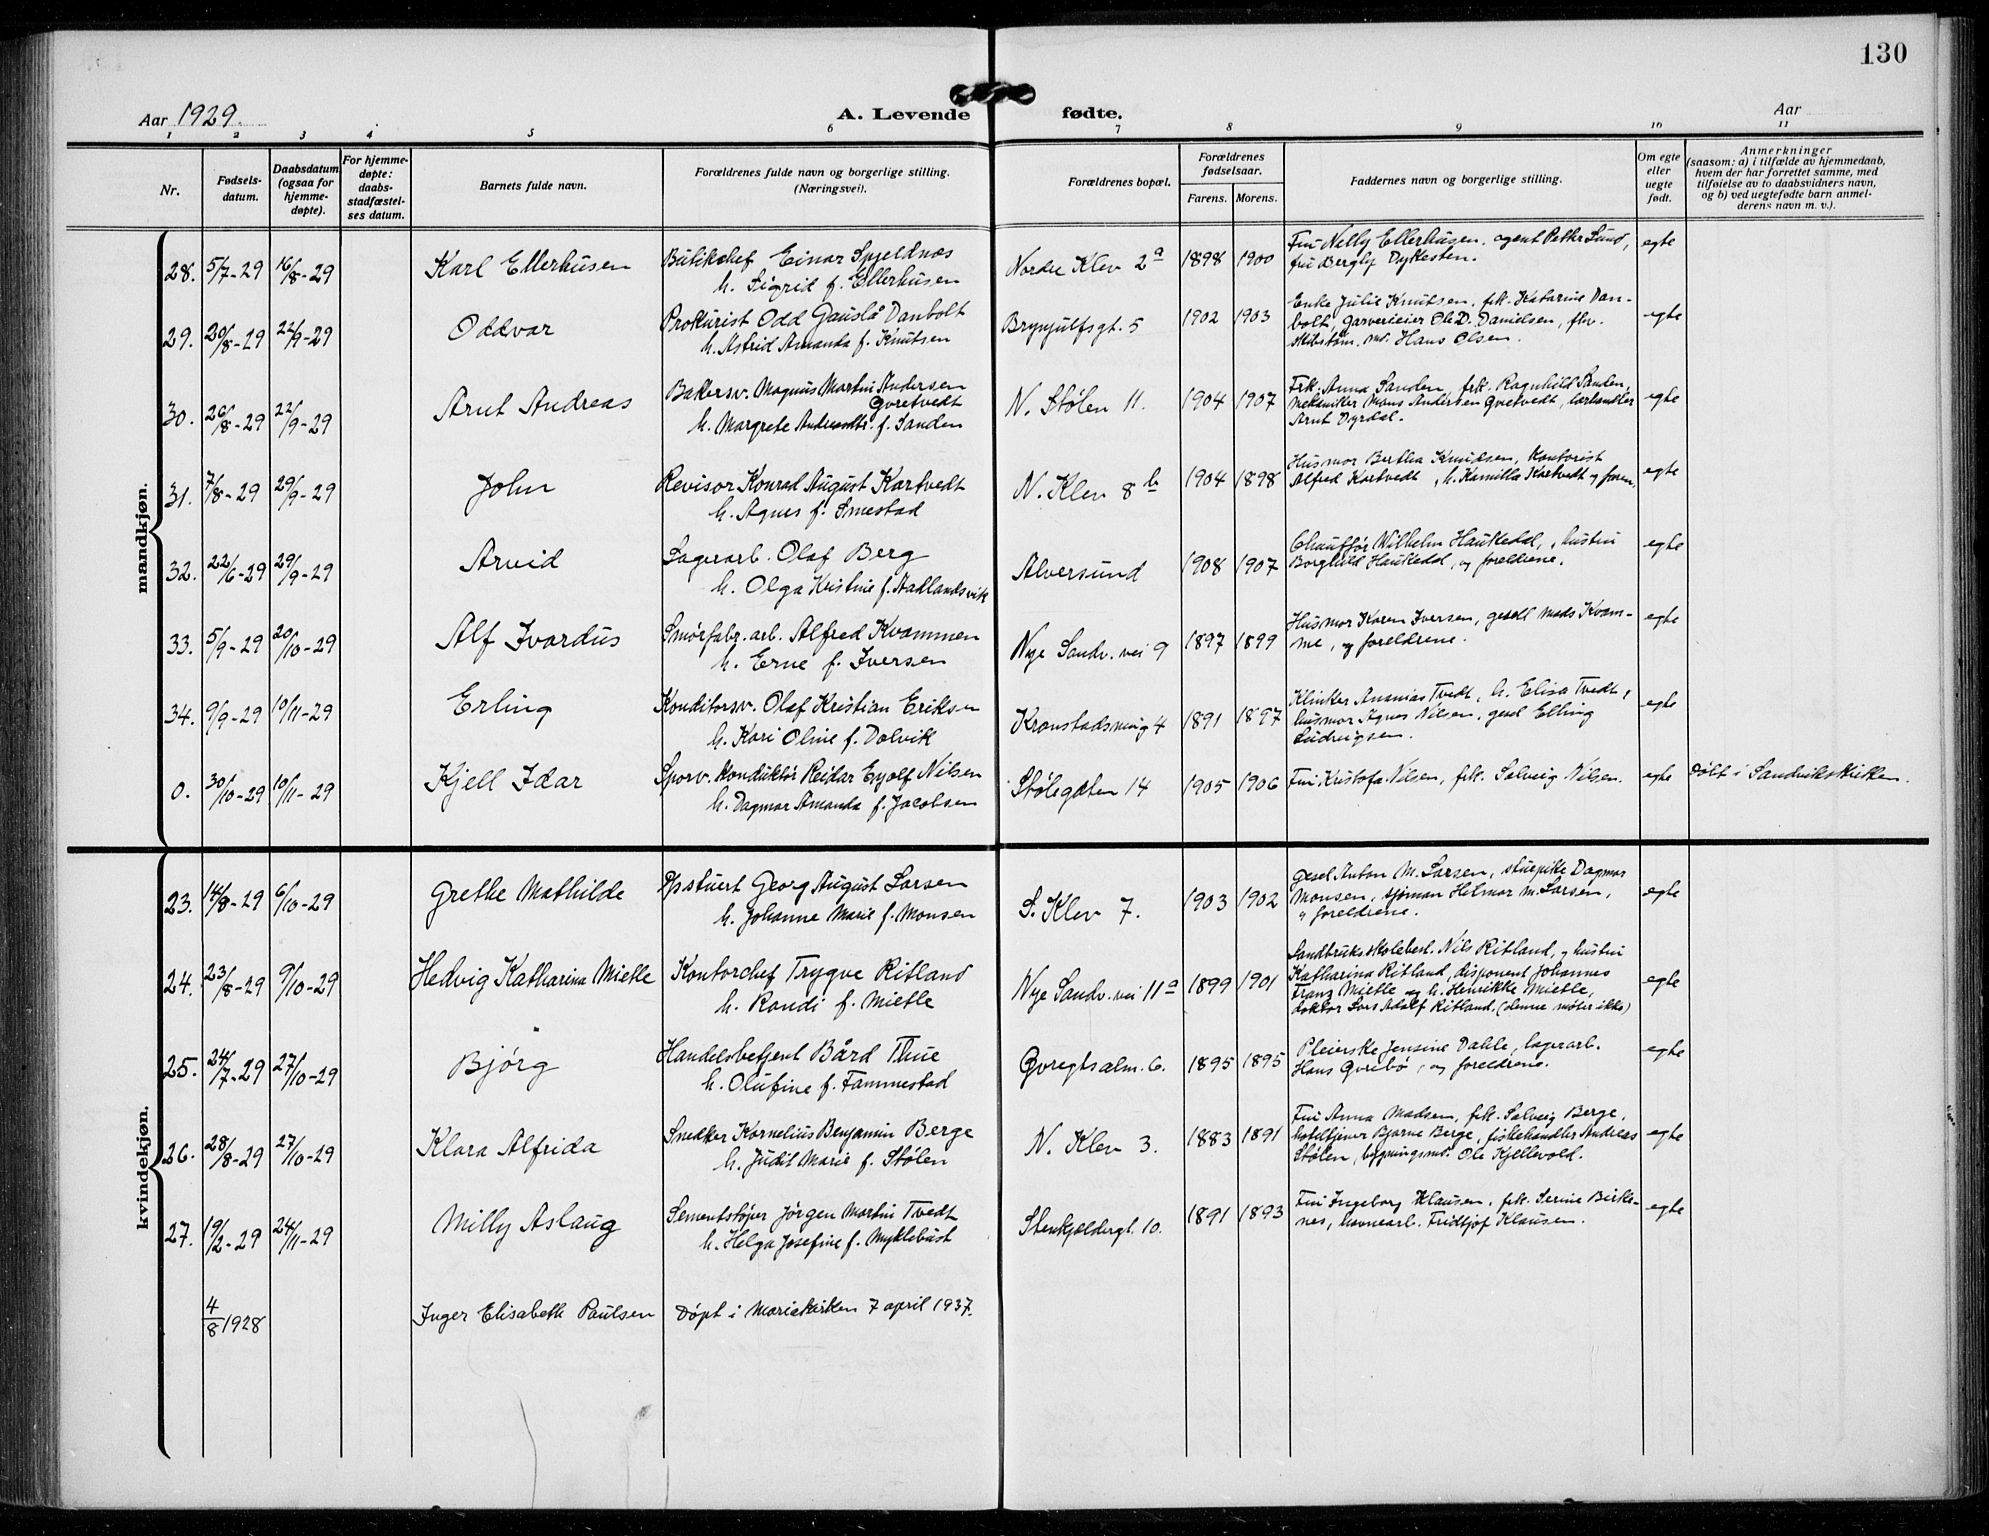 130
Aar 1929.
A. Levende fødte.
Aar
1 2 3 4 5 6 7 8 9 10 11
Nr.
Fødsels-
datum.
Daabsdatum
(ogsaa for
hjemme-
døpte).
For hjemme-
døpte:
daabs-
stadfæstel-
ses datum.
Barnets fulde navn.
Forældrenes fulde navn og borgerlige stilling.
(Næringsvei).
Forældrenes bopæl.
Forældrenes
fødselsaar.
Farens. Morens.
Faddernes navn og borgerlige stilling.
Om egte
eller
uegte
født.
Anmerkninger
(saasom: a) i tilfælde av hjemmedaab,
hvem der har forrettet samme, med
tilføielse av to daabsvidners navn,
og b) ved uegtefødte barn anmel-
derens navn m. v.).
mandkjøn.
28. 5/7-29 16/8-29 Karl Ellerhusen
Butikchef Einar Spjeldnæs
h. Sigrid f. Ellerhusen
Nordre Klev 2a 1898 1900
Fru Nelly Ellerhusen, agent Petter Lund,
fru Bergly Dykesten.
egte
29. 20/8-29 22/9-29 Oddvar
Prokurist Odd Gauslå Danbolt
h. Astrid Amanda f. Knutsen
Brynjulfsgt. 5 1902 1903
Enke Julie Knutsen, frk. Katarine Dan-
bolt, garverieier Ole D. Danielsen, fhv.
skibstøm. md. Hans Olsen.
egte
30. 26/8-29 22/9-29 Arnt Andreas
Bakersv. Magnus Martin Andersen
Qvretvedt
h. Margrete Andreasdtr. f. Sanden
N. Stølen 11. 1904 1907
Frk. Anna Sanden, frk. Ragnhild Sanden,
mekaniker Mons Andersen Qvretvedt, lærhandler
Arnt Dyrdal.
egte
31. 7/8-29 29/9-29 John
Revisor Konrad August Kartvedt
h. Agnes f. Smestad
N. Klev 8b 1904 1898
Husmor Bertha Knudsen, kontorist
Alfred Kartvedt, h. Kamilla Kartvedt og faren.
egte
32. 22/6-29 29/9-29 Arvid
Lagerarb. Olaf Berg
h. Olga Kristine f. Aadlandsvik
Alversund 1908 1907
Chauffør Wilhelm Haukedal, hustru
Borghild Haukedal, og foreldrene.
egte
33. 5/9-29 20/10-29 Alf Ivardus
Smørfabr. arb. Alfred Kvammen
h. Erne f. Iversen
Nye Sandv. vei 9 1897 1899
Husmor Karen Iversen, gesell Mads Kvam-
me, og foreldrene.
egte
34. 9/9-29 10/11-29 Erling
Konditorsv. Olaf Kristian Eriksen
h. Kari Oline f. Dolvik
Kronstadsmug 4 1891 1897
Klinker Ananias Tvedt, h. Elisa Tvedt,
husmor Agnes Nilsen, gesel Elling
Ludvigsen.
egte
0. 30/10-29 10/11-29 Kjell Idar
Sporv. konduktør Reidar Eyolf Nilsen
h. Dagmar Amanda f. Jacobsen
Stølegaten 14 1905 1906
Fru Kristofa Nilsen, frk. Solveig Nilsen.
egte
Døbt i Sandvikskirken.
kvindekjøn.
23. 14/8-29 6/10-29 Grethe Mathilde
Opstuert Georg August Larsen
h. Johanne Marie f. Monsen
S. Klev 7. 1903 1902
Gesel Anton M. Larsen, stuepike Dagmar
Monsen, sjømann Helmar M. Larsen,
og foreldrene.
egte
24. 23/8-29 9/10-29 Hedvig Katharina Mietle
Kontorchef Trygve Ritland
h. Randi f. Mietle
Nye Sandv. vei 11a 1899 1901
Landbruksskolebest. Nils Ritland, og hustru
Katharina Ritland, disponent Johannes
Franz Mietle og h. Henrikke Mietle,
doktor Lars Adolf Ritland. (denne møter ikke)
egte
25. 24/7-29 27/10-29 Bjørg
Handelsbetjent Bård Thue
h. Olufine f. Fammestad
Qvregtsalm. 6. 1895 1895
Pleierske Jensine Dahle, lagerarb.
Hans Qvrebø, og foreldrene.
egte
26. 28/8-29 27/10-29 Klara Alfrida
Snedker Kornelius Benjamin Berge
h. Judit Marie f. Stølen
N. Klev 3. 1883 1891
Fru Anna Madsen, frk. Solveig Berge,
hoteltjener Bjarne Berge, fiskehandler Andreas
Stølen, bygningsmd. Ole Kjellevold.
egte
27. 19/2-29 24/11-29 Milly Aslaug
Sementstøper Jørgen Martin Tvedt
h. Helga Josefine f. Myklebust
Stenkjeldergt. 10. 1891 1893
Fru Ingeborg Klausen, frk. Serine Birke-
nes, havnearb. Fridtjof Klausen.
egte
4/8 1928 Inger Elisabeth Paulsen Døpt i Mariakirken 7 april 1937.